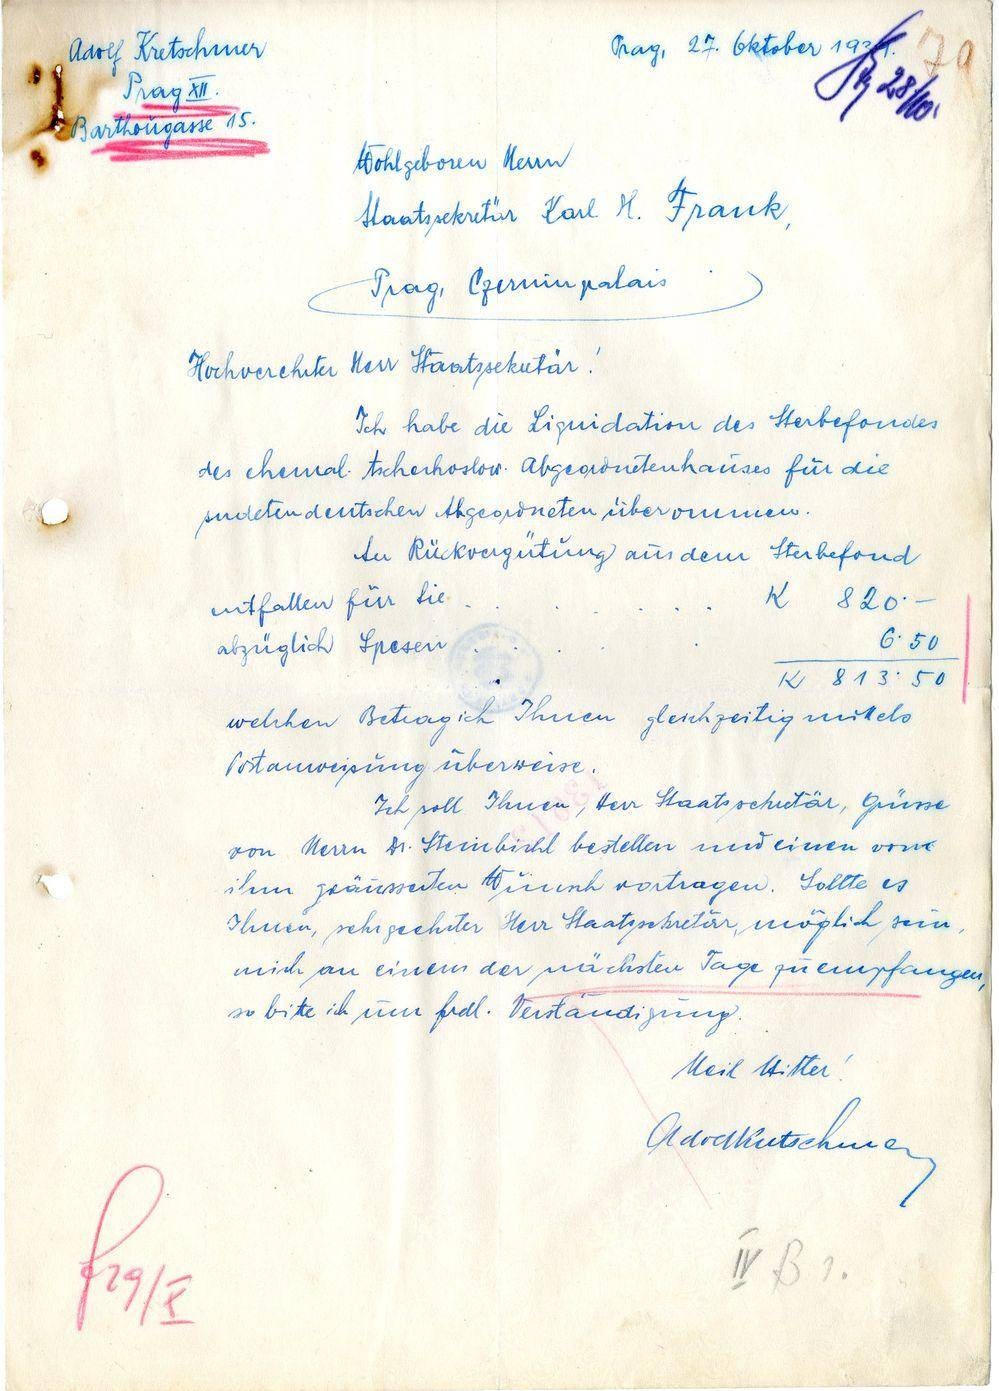 Adolf Kretschmer
Prag XII.
Barthougasse 15.
Prag, 27. Oktober
28/10.
70
Wohlgeboren Herrn
Staatssekretär Karl H. Frank,
Prag, Czerninpalais
Hochverehrter Herr Staatssekretär!
Ich habe die Liquidation des Sterbefondes
des ehemal. tschechoslow. Abgeordnetenhauses für die
sudetendeutschen Abgeordneten übernommen.
An Rückvergütung aus dem Sterbefond
entfallen für Sie . . . . . . K 820.-
abzüglich Spesen . . . . . 6.50
K 813.50
welchen Betrag ich Ihnen gleichzeitig mittels
Postanweisung überweise.
Ich soll Ihnen, Herr Staatssekretär, Grüsse
von Herrn Dr. Steinbichl bestellen und einen von
ihm geäusserten Wunsch vortragen. Sollte es
Ihnen, sehrgeehrter Herr Staatssekretär, möglich sein,
mich an einem der nächsten Tage zu empfangen,
so bitte ich um frdl. Verständigung.
Heil Hitler!
Adolf Kretschmer
29/X
IV B 1.